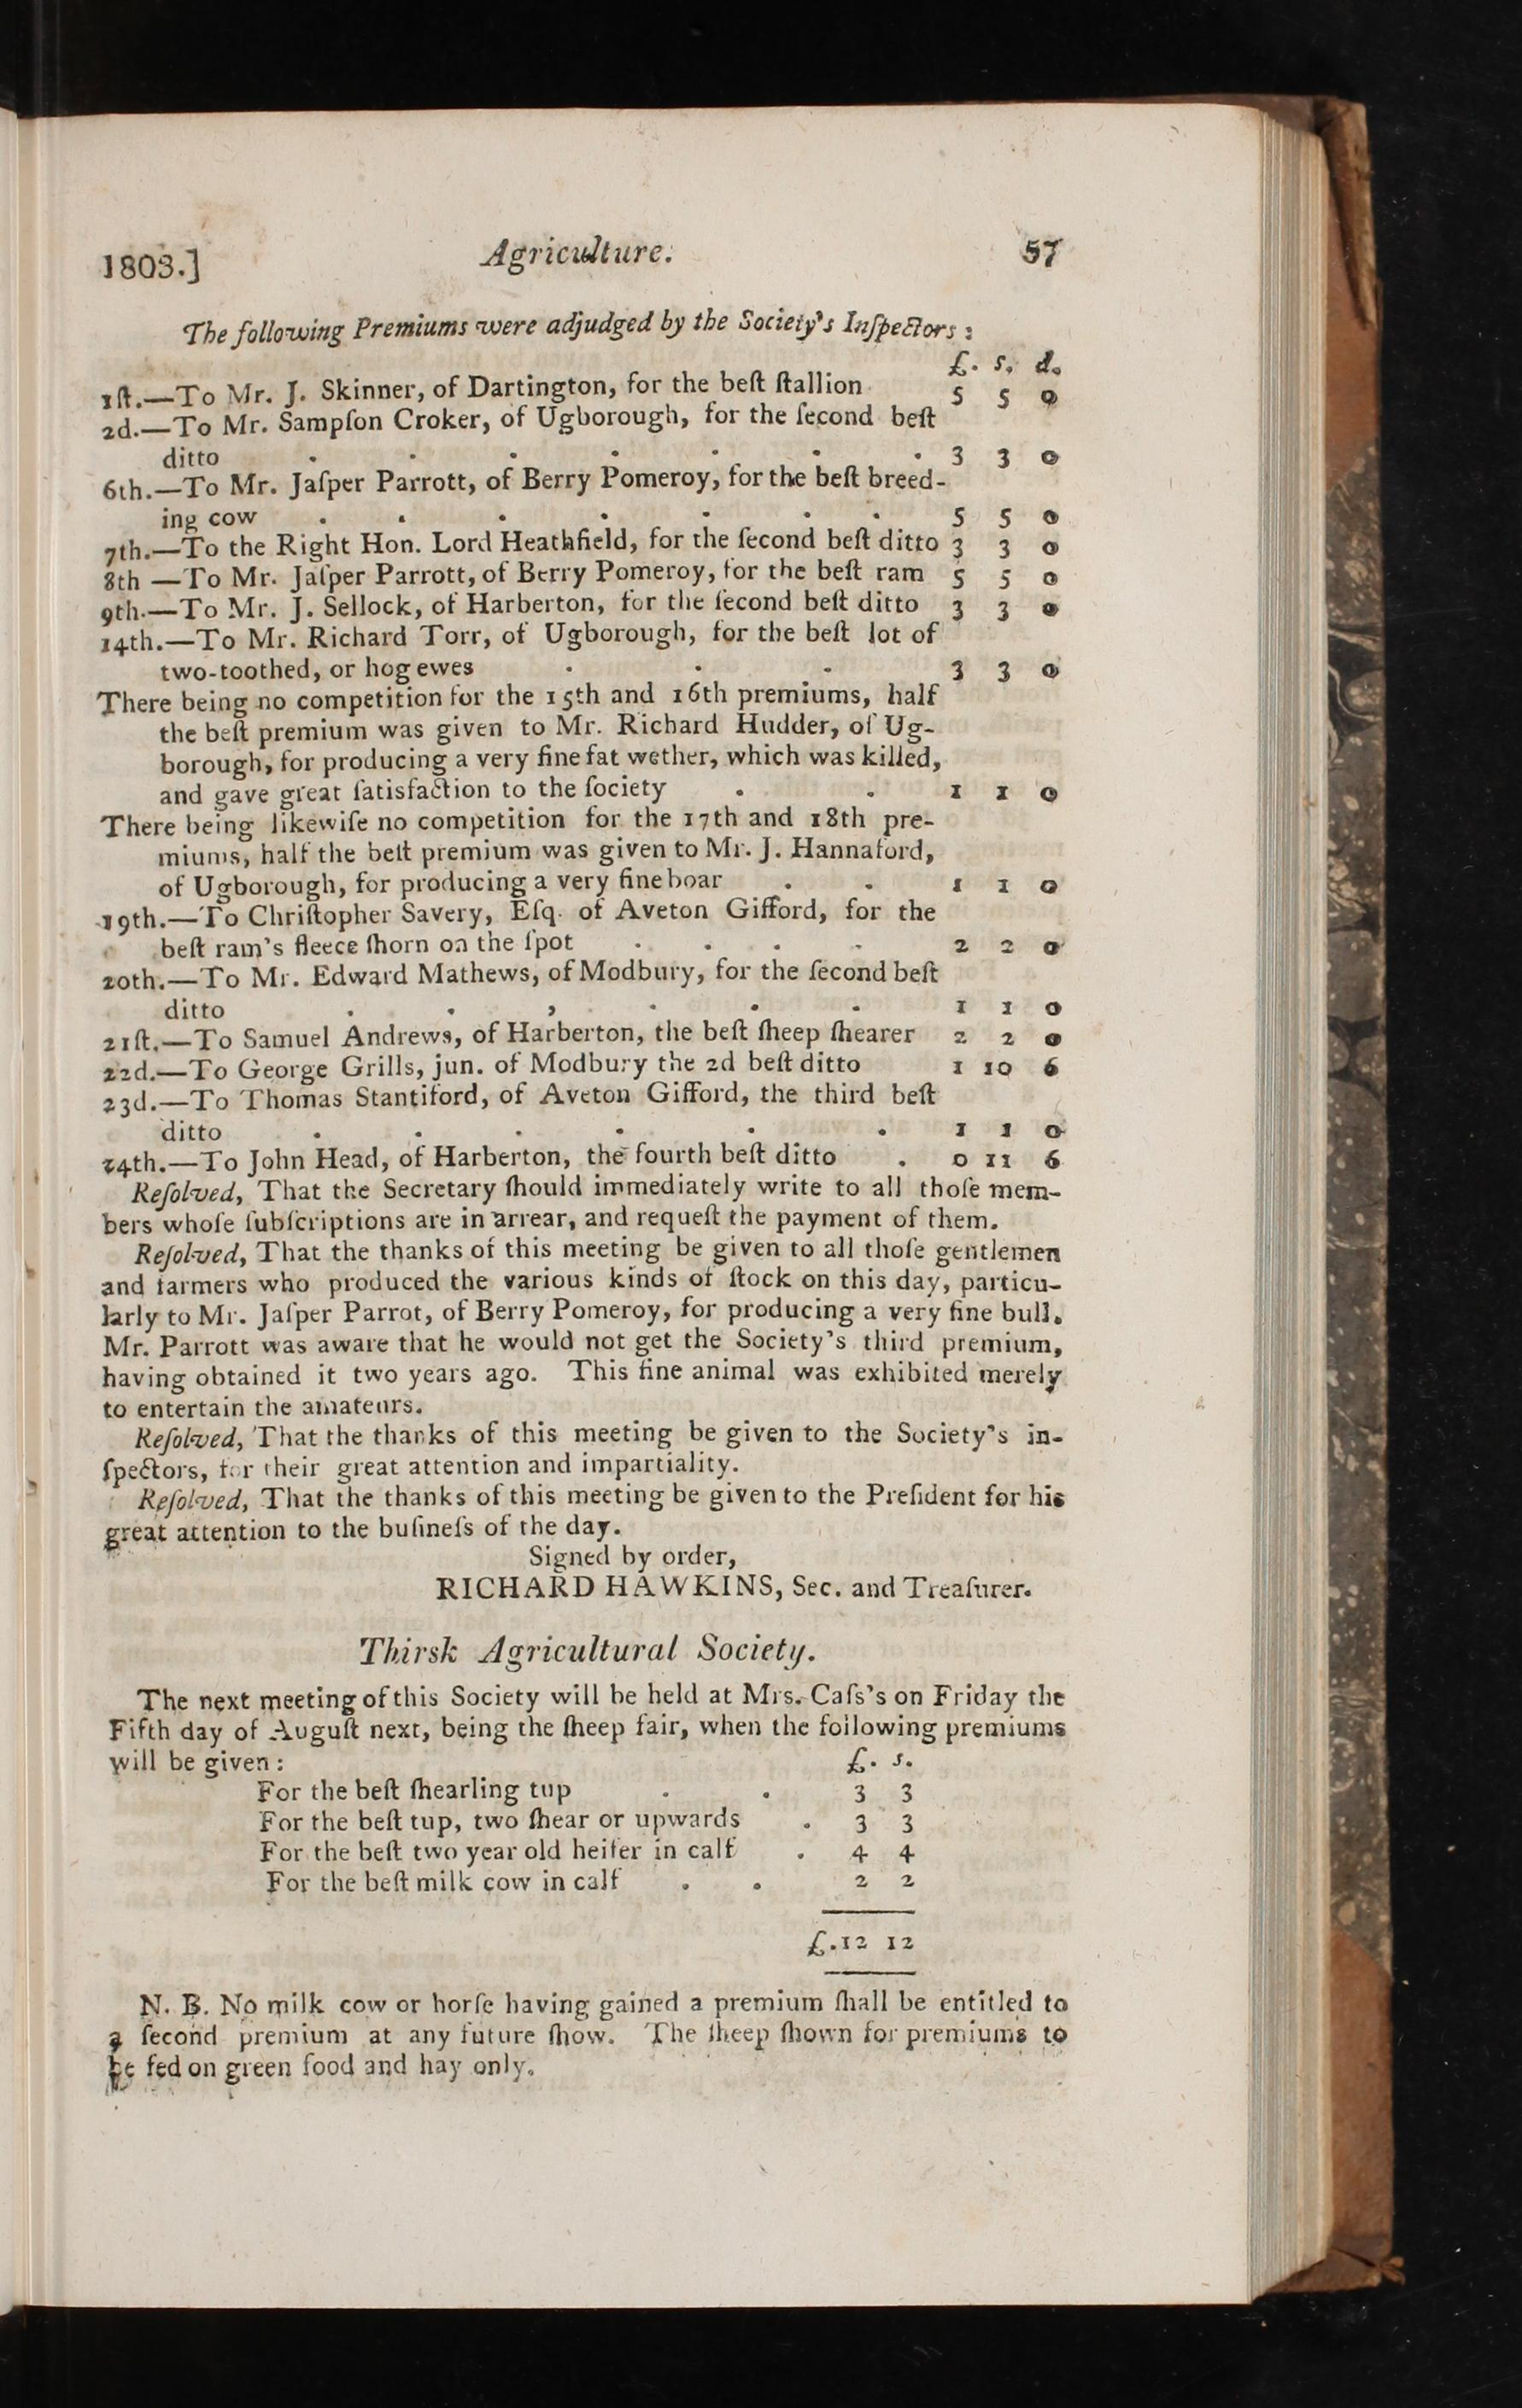 1803.] Agriculture. 57
The following Premiums were adjudged by the Society's Inſpectors :
£. s. d.
1ſt.—To Mr. J. Skinner, of Dartington, for the beſt ſtallion 5 5 0
2d.—To Mr. Sampſon Croker, of Ugborough, for the ſecond beſt
ditto . . . . . . . 3 3 0
6th.—To Mr. Jaſper Parrott, of Berry Pomeroy, for the beſt breed-
ing cow . . . . . . . 5 5 0
7th.—To the Right Hon. Lord Heathfield, for the ſecond beſt ditto 3 3 0
8th —To Mr. Jaſper Parrott, of Berry Pomeroy, for the beſt ram 5 5 0
9th.—To Mr. J. Sellock, of Harberton, for the ſecond beſt ditto 3 3 0
14th.—To Mr. Richard Torr, of Ugborough, for the beſt lot of
two-toothed, or hog ewes . . . 3 3 0
There being no competition for the 15th and 16th premiums, half
the beſt premium was given to Mr. Richard Hudder, of Ug-
borough, for producing a very fine fat wether, which was killed,
and gave great ſatisfaction to the ſociety . . 1 1 0
There being likewiſe no competition for the 17th and 18th pre-
miums, half the beſt premium was given to Mr. J. Hannaford,
of Ugborough, for producing a very fine boar . . 1 1 0
19th.—To Chriſtopher Savery, Eſq. of Aveton Gifford, for the
beſt ram's fleece ſhorn on the ſpot . . . . 2 2 0
20th.—To Mr. Edward Mathews, of Modbury, for the ſecond beſt
ditto . . , . . . 1 1 0
21ſt.—To Samuel Andrews, of Harberton, the beſt ſheep ſhearer 2 2 0
22d.—To George Grills, jun. of Modbury the 2d beſt ditto 1 10 6
23d.—To Thomas Stantiford, of Aveton Gifford, the third beſt
ditto . . . . . . 1 1 0
24th.—To John Head, of Harberton, the fourth beſt ditto . 0 11 6
Reſolved, That the Secretary ſhould immediately write to all thoſe mem-
bers whoſe ſubſcriptions are in arrear, and requeſt the payment of them.
Reſolved, That the thanks of this meeting be given to all thoſe gentlemen
and farmers who produced the various kinds of ſtock on this day, particu-
larly to Mr. Jaſper Parrot, of Berry Pomeroy, for producing a very fine bull.
Mr. Parrott was aware that he would not get the Society's third premium,
having obtained it two years ago. This fine animal was exhibited merely
to entertain the amateurs.
Reſolved, That the thanks of this meeting be given to the Society's in-
ſpectors, for their great attention and impartiality.
Reſolved, That the thanks of this meeting be given to the Preſident for his
great attention to the buſineſs of the day.
Signed by order,
RICHARD HAWKINS, Sec. and Treaſurer.
Thirsk Agricultural Society.
The next meeting of this Society will be held at Mrs. Caſs's on Friday the
Fifth day of Auguſt next, being the ſheep fair, when the following premiums
will be given : £. s.
For the beſt ſhearling tup . . 3 3
For the beſt tup, two ſhear or upwards . 3 3
For the beſt two year old heifer in calf . 4 4
For the beſt milk cow in calf . . 2 2
£.12 12
N. B. No milk cow or horſe having gained a premium ſhall be entitled to
a ſecond premium at any future ſhow. The ſheep ſhown for premiums to
be fed on green food and hay only.